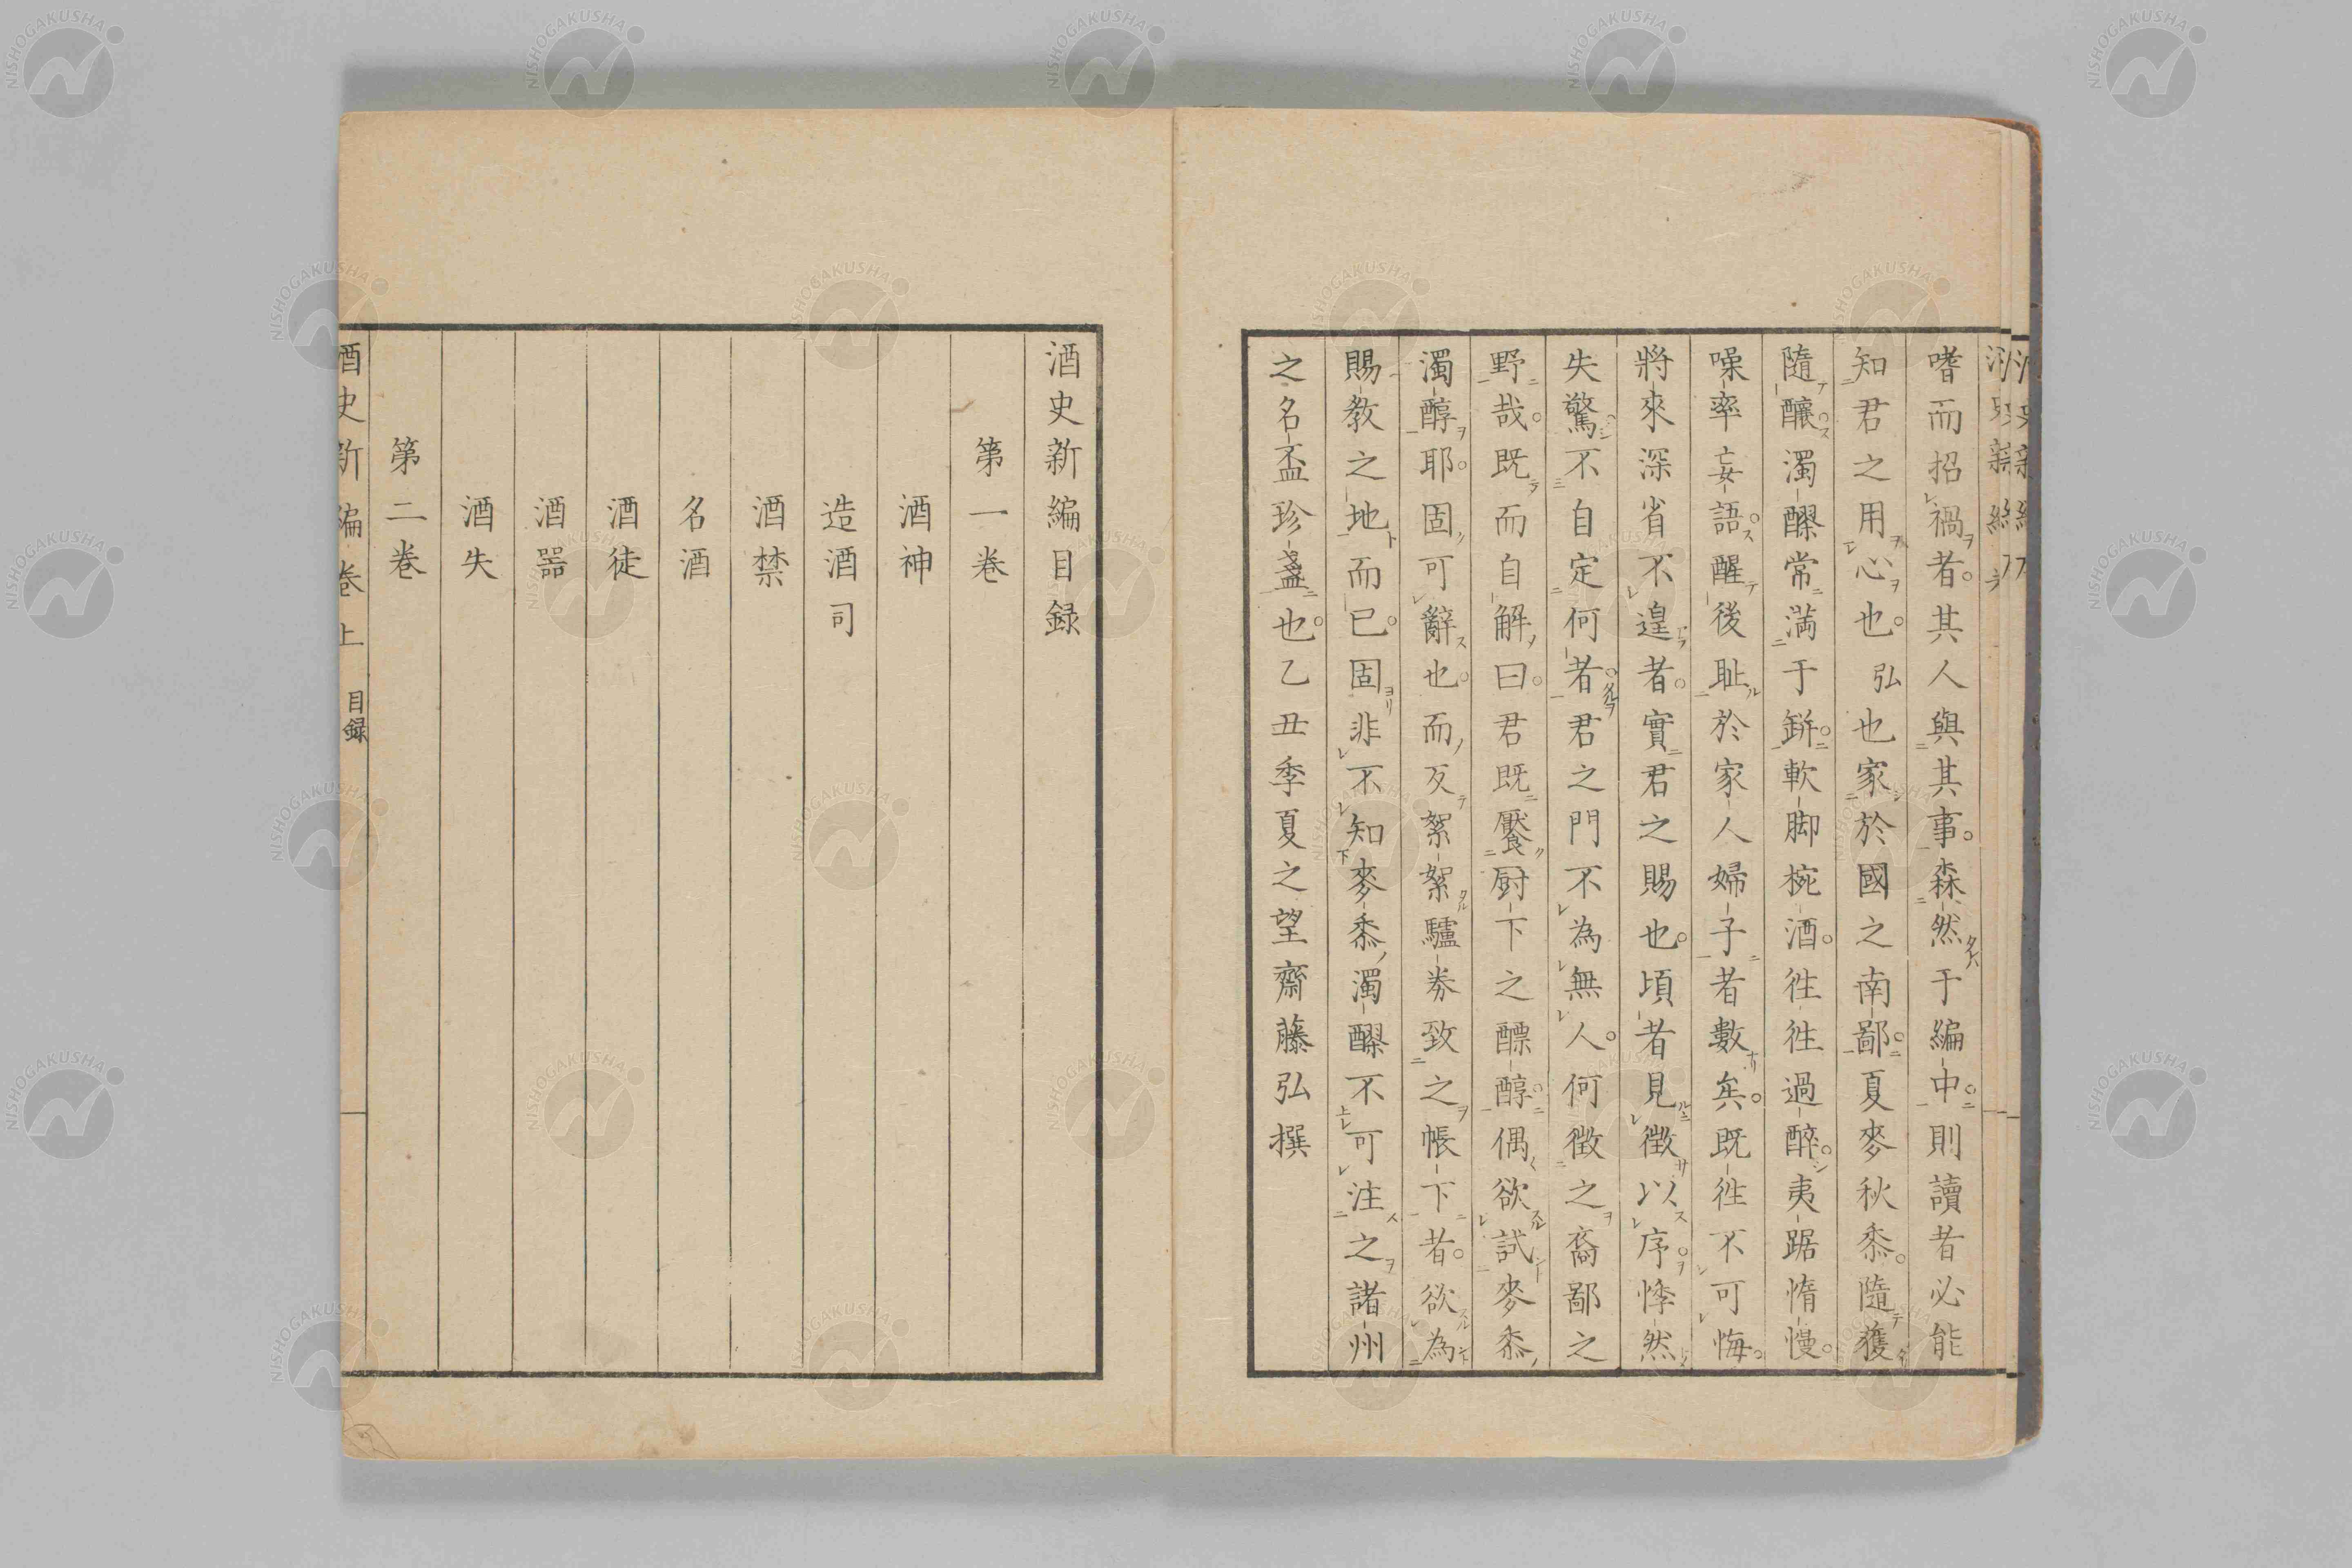 嗜而招禍者其人與其事森然于編中則讀者必能
知君之用心也弘也家於國之南鄙夏麥秋黍隨獲
隨釀濁醪常満于缾軟脚椀酒徃徃過醉夷踞惰慢
噪率妄語醒後耻於家人婦子者數矣既徃不可悔
將來深省不遑者實君之賜也頃者見徴以序悸然
失驚不自定何者君之門不為無人何徴之裔鄙之
野哉既而自解曰君既饜厨下之醥醇偶欲試麥黍
濁醇耶固可辭也而反絮絮驢券致之帳下者欲為
賜教之地而已固非不知麥黍濁醪不可注之諸州
之名盃珍盞也乙丑季夏之望齋藤弘撰
酒史新編目録
第一巻
酒神
造酒司
酒禁
名酒
酒徒
酒器
酒失
第二巻
酒史新編巻上 目録
NISHOGAKUSHA